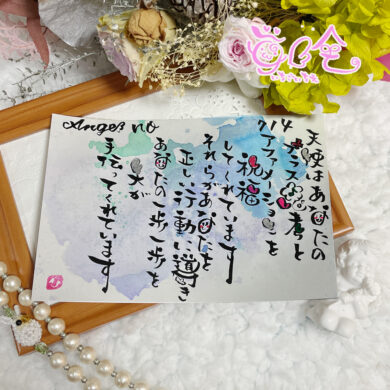 Angel no
714
天使はあなたの
プラスな思考と
アファメーションを
祝福
してくれています
それらがあなたを
正しい行動に導き
天が
あなたの一歩一歩を
手伝ってくれています